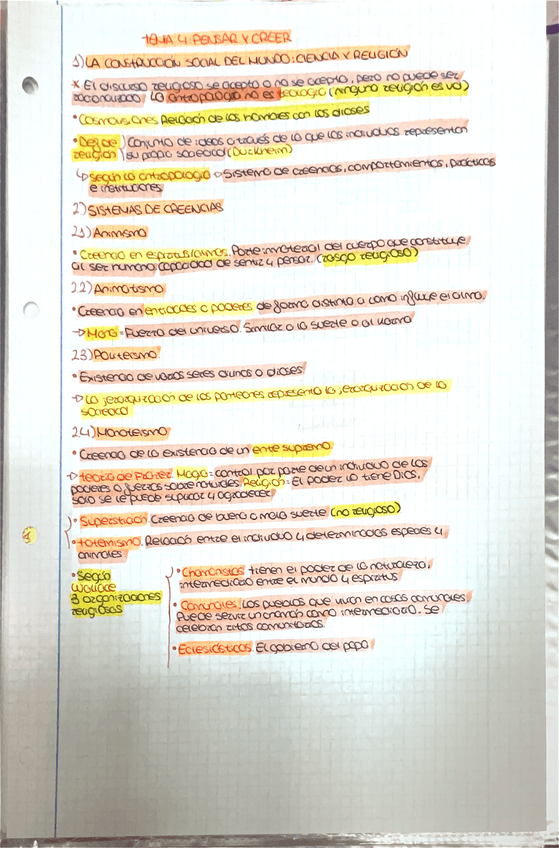 TEMA 4: PENSAR Y CREER
1) LA CONSTRUCCIÓN SOCIAL DEL MUNDO: CIENCIA Y RELIGIÓN
* El discurso religioso se acepta o no se acepta, pero no puede ser
racionalizado. La antropología no es teología (ninguna religión es vol)
• Cosmovisiones. Relación de los hombres con los dioses
• Def. de religión
Conjunto de ideas a través de lo que los individuos representan
su propia sociedad (Durkheim)
↳ Según la antropología → Sistema de creencias, comportamientos, prácticas
e instituciones
2) SISTEMAS DE CREENCIAS
2.1) Animismo
• Creencia en espíritus/almas. Parte inmaterial del cuerpo que constituye
al ser humano capacidad de sentir y pensar. (rasgo religioso)
2.2) Animatismo
• Creencia en entidades o poderes de forma distinta a como influye el alma.
→ Maná = Fuerza del universo. Similar a la suerte o al karma
2.3) Politeísmo
• Existencia de varios seres divinos o dioses
→ La jerarquización de los panteones representa la jerarquización de la
sociedad
2.4) Monoteísmo
• Creencia de la existencia de un ente supremo.
→ Teoría de Frazer. Magia = control por parte de un individuo de los
poderes o fuerzas sobrenaturales. Religión = El poder lo tiene DIOS,
solo se le puede suplicar y agradecer
• Superstición. Creencia de buena o mala suerte (no religioso)
• Totemismo. Relación entre el individuo y determinadas especies y
animales
• Según
Wallace
3 organizaciones
religiosas
• Chamanistas: tienen el poder de la naturaleza,
intermediario entre el mundo y espíritus
• Comunales. Los pueblos que viven en casas comunales.
Puede servir un chamán como intermediario. Se
celebran ritos comunitarios.
• Eclesiásticos. El gobierno del papa